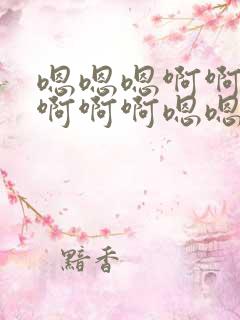 嗯嗯嗯啊啊
啊啊啊嗯嗯
黯香